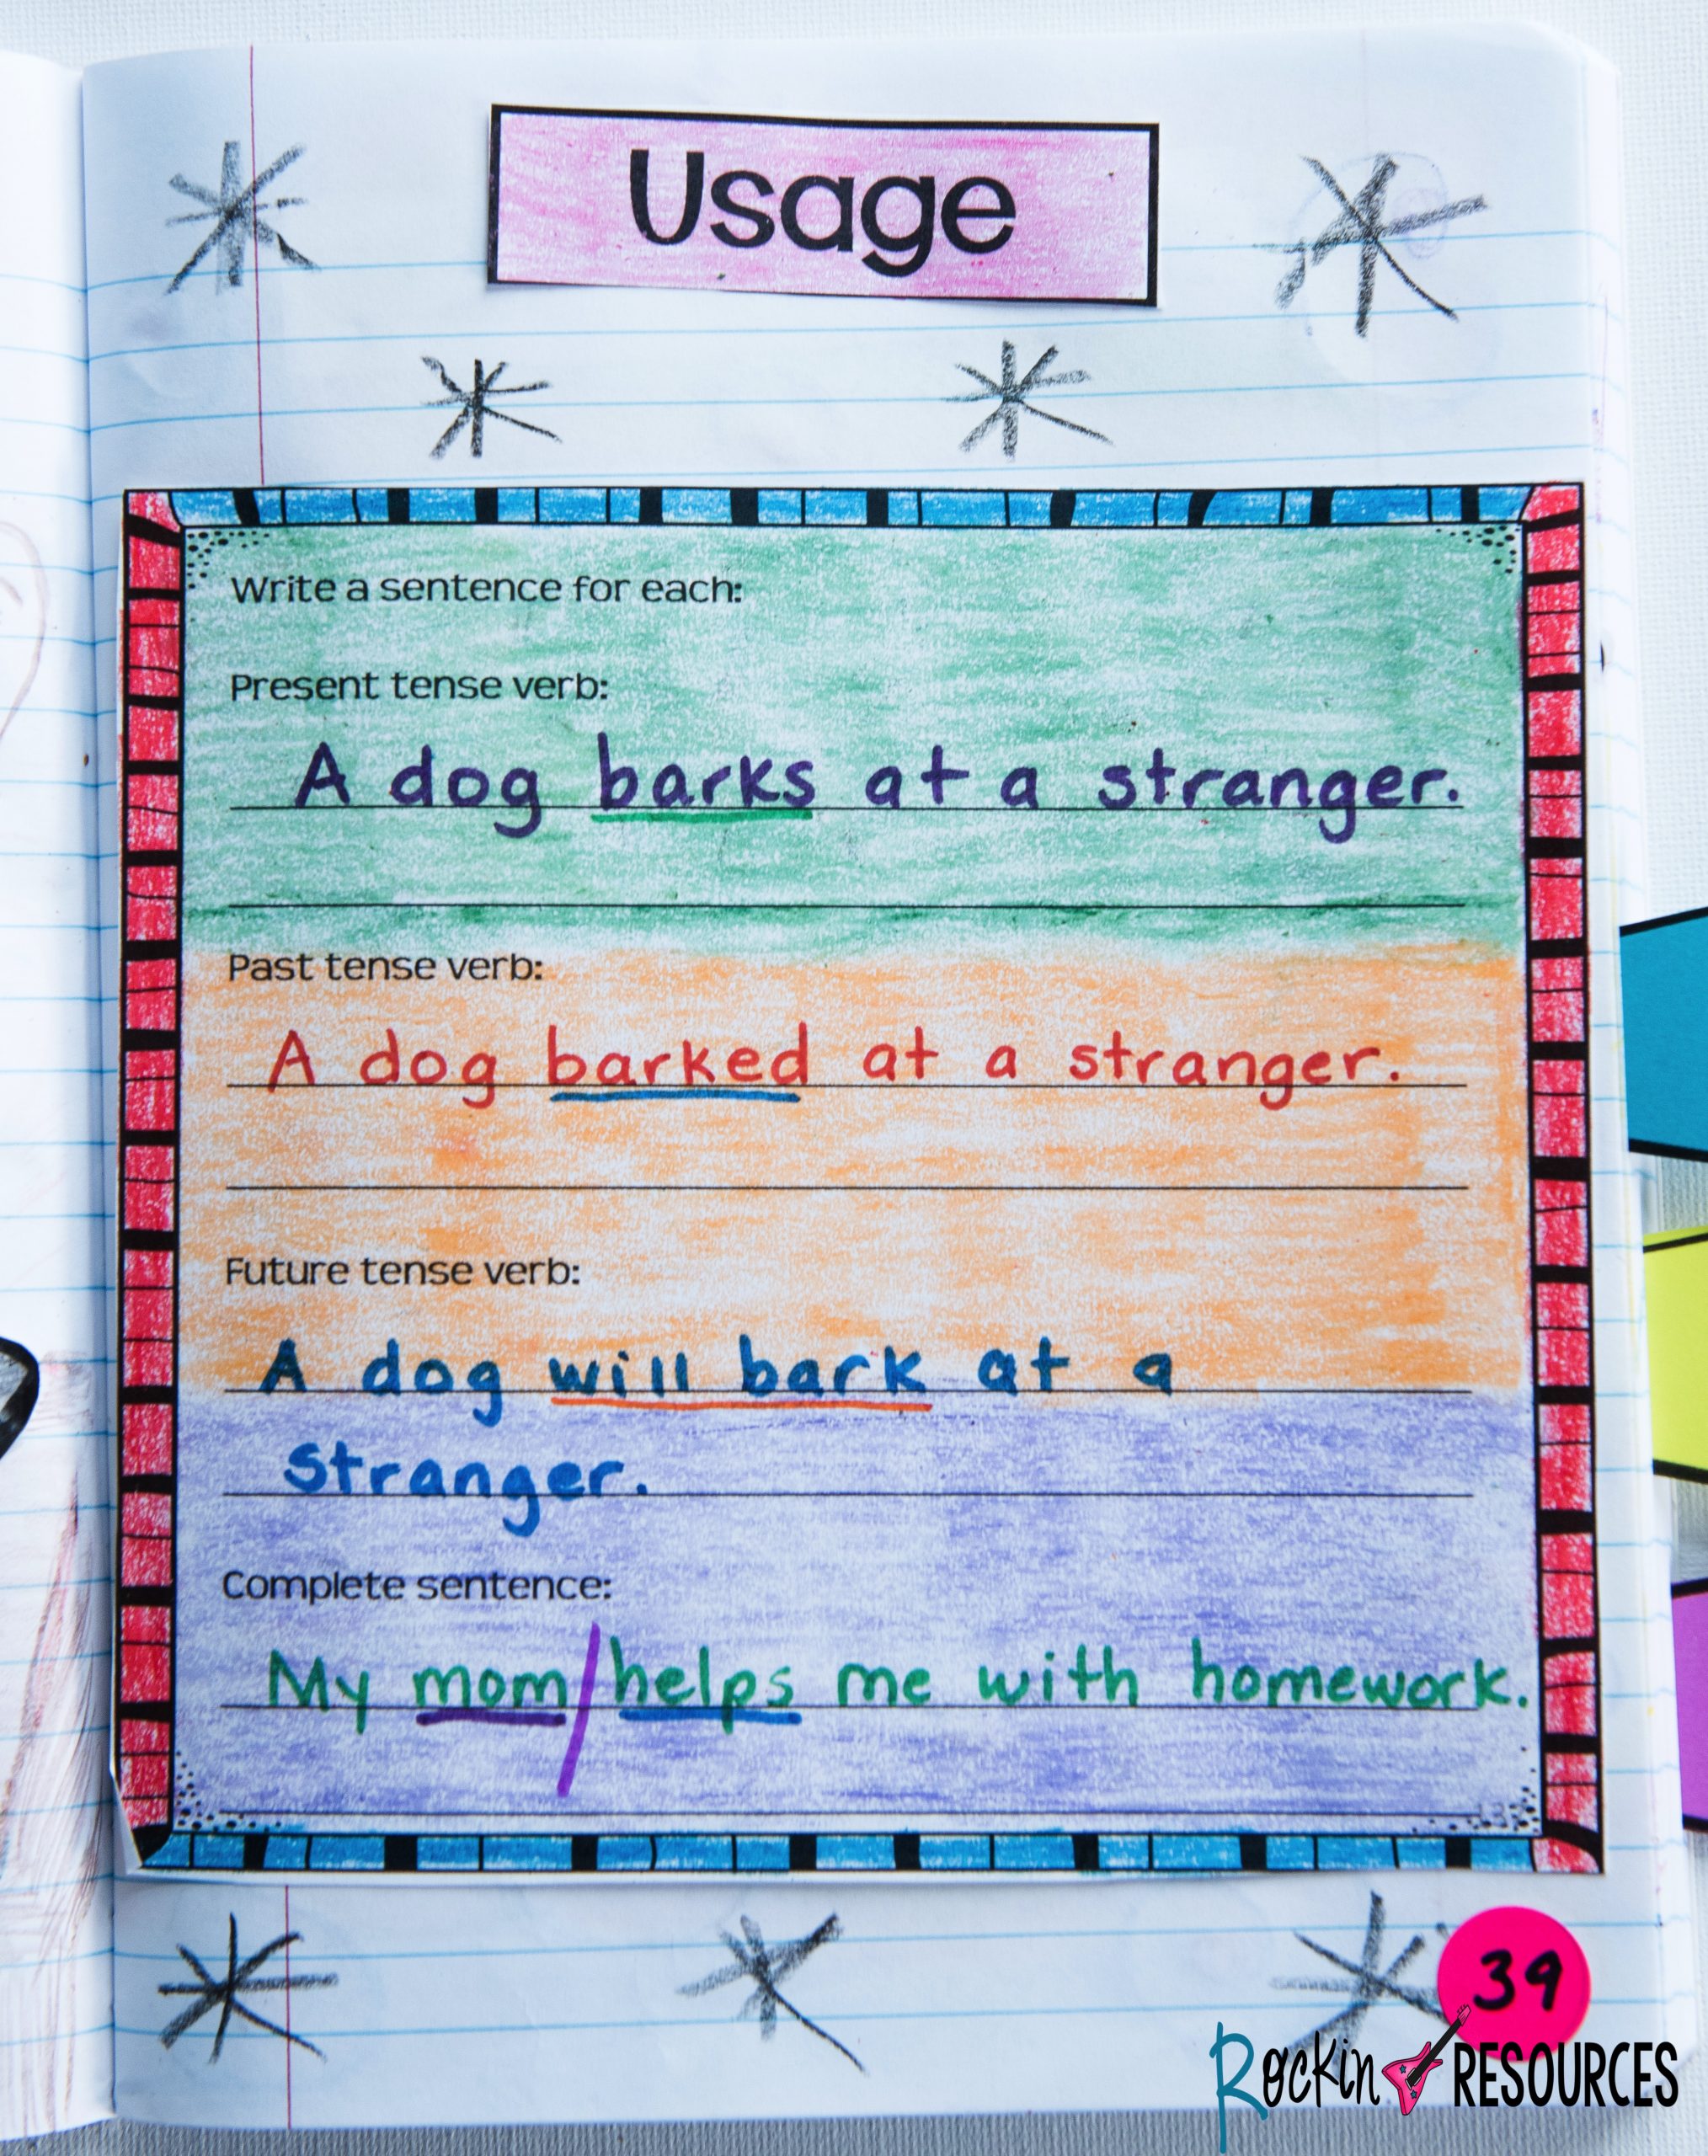 Usage
Write a sentence for each:
Present tense verb:
A dog barks at a stranger.
Past tense verb:
A dog barked at a stranger.
Future tense verb:
A dog will bark at a
stranger.
Complete sentence:
My mom/helps me with homework.
39
Rockin RESOURCES